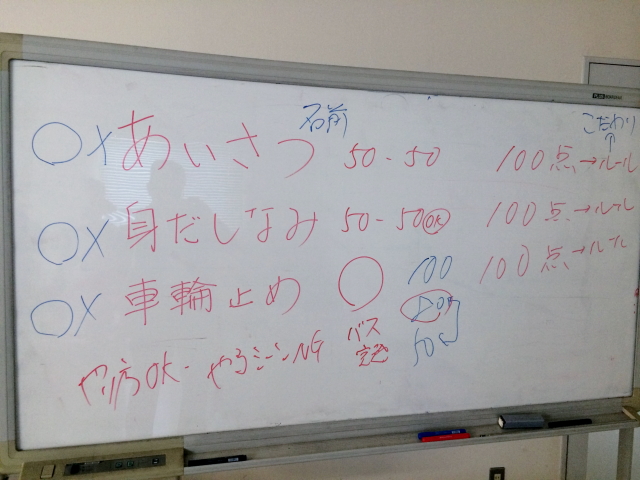 名前 こだわり
○× あいさつ 50-50 100点→ルール
○× 身だしなみ 50-50 OK 100点→ルール
○× 車輪止め ○ 100 100点→ルール
バス 50
やり方OK・やるシーンNG
PLUS